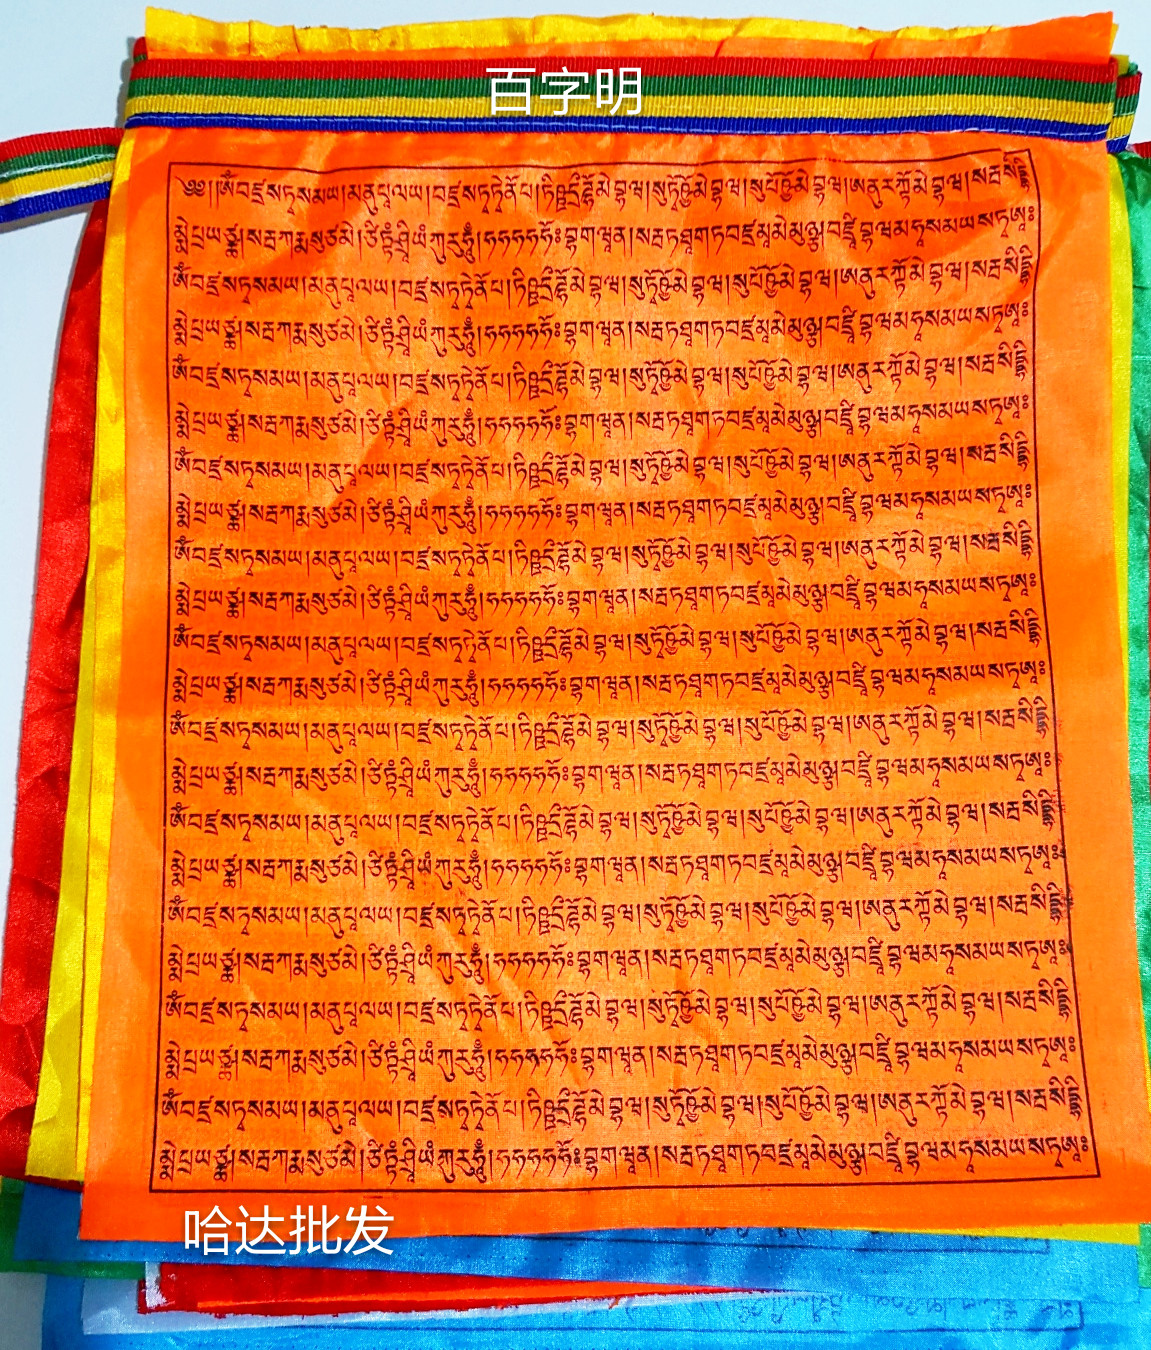 百字明
༄༅།།ༀབཛྲསཏྭསམཡ།མནུཔཱལཡ།བཛྲསཏྭཏྭེནོཔ།ཏིཥྛདྲྀཌྷོམེབྷཝ།སུཏོཥྱོམེབྷཝ།སུཔོཥྱོམེབྷཝ།ཨནུརཀྟོམེབྷཝ།སརྦསིདྡྷི
མྨེཔྲཡཙྪ།སརྦཀརྨསུཙམེ།ཙིཏྟཾཤྲཱིཡཾཀུརུཧཱུྃ།ཧཧཧཧཧོཿབྷགཝཱན།སརྦཏཐཱགཏབཛྲམཱམེམུཉྩ།བཛྲཱིབྷཝམཧཱསམཡསཏྭཨཱཿ
ༀབཛྲསཏྭསམཡ།མནུཔཱལཡ།བཛྲསཏྭཏྭེནོཔ།ཏིཥྛདྲྀཌྷོམེབྷཝ།སུཏོཥྱོམེབྷཝ།སུཔོཥྱོམེབྷཝ།ཨནུརཀྟོམེབྷཝ།སརྦསིདྡྷི
མྨེཔྲཡཙྪ།སརྦཀརྨསུཙམེ།ཙིཏྟཾཤྲཱིཡཾཀུརུཧཱུྃ།ཧཧཧཧཧོཿབྷགཝཱན།སརྦཏཐཱགཏབཛྲམཱམེམུཉྩ།བཛྲཱིབྷཝམཧཱསམཡསཏྭཨཱཿ
ༀབཛྲསཏྭསམཡ།མནུཔཱལཡ།བཛྲསཏྭཏྭེནོཔ།ཏིཥྛདྲྀཌྷོམེབྷཝ།སུཏོཥྱོམེབྷཝ།སུཔོཥྱོམེབྷཝ།ཨནུརཀྟོམེབྷཝ།སརྦསིདྡྷི
མྨེཔྲཡཙྪ།སརྦཀརྨསུཙམེ།ཙིཏྟཾཤྲཱིཡཾཀུརུཧཱུྃ།ཧཧཧཧཧོཿབྷགཝཱན།སརྦཏཐཱགཏབཛྲམཱམེམུཉྩ།བཛྲཱིབྷཝམཧཱསམཡསཏྭཨཱཿ
ༀབཛྲསཏྭསམཡ།མནུཔཱལཡ།བཛྲསཏྭཏྭེནོཔ།ཏིཥྛདྲྀཌྷོམེབྷཝ།སུཏོཥྱོམེབྷཝ།སུཔོཥྱོམེབྷཝ།ཨནུརཀྟོམེབྷཝ།སརྦསིདྡྷི
མྨེཔྲཡཙྪ།སརྦཀརྨསུཙམེ།ཙིཏྟཾཤྲཱིཡཾཀུརུཧཱུྃ།ཧཧཧཧཧོཿབྷགཝཱན།སརྦཏཐཱགཏབཛྲམཱམེམུཉྩ།བཛྲཱིབྷཝམཧཱསམཡསཏྭཨཱཿ
ༀབཛྲསཏྭསམཡ།མནུཔཱལཡ།བཛྲསཏྭཏྭེནོཔ།ཏིཥྛདྲྀཌྷོམེབྷཝ།སུཏོཥྱོམེབྷཝ།སུཔོཥྱོམེབྷཝ།ཨནུརཀྟོམེབྷཝ།སརྦསིདྡྷི
མྨེཔྲཡཙྪ།སརྦཀརྨསུཙམེ།ཙིཏྟཾཤྲཱིཡཾཀུརུཧཱུྃ།ཧཧཧཧཧོཿབྷགཝཱན།སརྦཏཐཱགཏབཛྲམཱམེམུཉྩ།བཛྲཱིབྷཝམཧཱསམཡསཏྭཨཱཿ
ༀབཛྲསཏྭསམཡ།མནུཔཱལཡ།བཛྲསཏྭཏྭེནོཔ།ཏིཥྛདྲྀཌྷོམེབྷཝ།སུཏོཥྱོམེབྷཝ།སུཔོཥྱོམེབྷཝ།ཨནུརཀྟོམེབྷཝ།སརྦསིདྡྷི
མྨེཔྲཡཙྪ།སརྦཀརྨསུཙམེ།ཙིཏྟཾཤྲཱིཡཾཀུརུཧཱུྃ།ཧཧཧཧཧོཿབྷགཝཱན།སརྦཏཐཱགཏབཛྲམཱམེམུཉྩ།བཛྲཱིབྷཝམཧཱསམཡསཏྭཨཱཿ
ༀབཛྲསཏྭསམཡ།མནུཔཱལཡ།བཛྲསཏྭཏྭེནོཔ།ཏིཥྛདྲྀཌྷོམེབྷཝ།སུཏོཥྱོམེབྷཝ།སུཔོཥྱོམེབྷཝ།ཨནུརཀྟོམེབྷཝ།སརྦསིདྡྷི
མྨེཔྲཡཙྪ།སརྦཀརྨསུཙམེ།ཙིཏྟཾཤྲཱིཡཾཀུརུཧཱུྃ།ཧཧཧཧཧོཿབྷགཝཱན།སརྦཏཐཱགཏབཛྲམཱམེམུཉྩ།བཛྲཱིབྷཝམཧཱསམཡསཏྭཨཱཿ
ༀབཛྲསཏྭསམཡ།མནུཔཱལཡ།བཛྲསཏྭཏྭེནོཔ།ཏིཥྛདྲྀཌྷོམེབྷཝ།སུཏོཥྱོམེབྷཝ།སུཔོཥྱོམེབྷཝ།ཨནུརཀྟོམེབྷཝ།སརྦསིདྡྷི
མྨེཔྲཡཙྪ།སརྦཀརྨསུཙམེ།ཙིཏྟཾཤྲཱིཡཾཀུརུཧཱུྃ།ཧཧཧཧཧོཿབྷགཝཱན།སརྦཏཐཱགཏབཛྲམཱམེམུཉྩ།བཛྲཱིབྷཝམཧཱསམཡསཏྭཨཱཿ
ༀབཛྲསཏྭསམཡ།མནུཔཱལཡ།བཛྲསཏྭཏྭེནོཔ།ཏིཥྛདྲྀཌྷོམེབྷཝ།སུཏོཥྱོམེབྷཝ།སུཔོཥྱོམེབྷཝ།ཨནུརཀྟོམེབྷཝ།སརྦསིདྡྷི
མྨེཔྲཡཙྪ།སརྦཀརྨསུཙམེ།ཙིཏྟཾཤྲཱིཡཾཀུརུཧཱུྃ།ཧཧཧཧཧོཿབྷགཝཱན།སརྦཏཐཱགཏབཛྲམཱམེམུཉྩ།བཛྲཱིབྷཝམཧཱསམཡསཏྭཨཱཿ
ༀབཛྲསཏྭསམཡ།མནུཔཱལཡ།བཛྲསཏྭཏྭེནོཔ།ཏིཥྛདྲྀཌྷོམེབྷཝ།སུཏོཥྱོམེབྷཝ།སུཔོཥྱོམེབྷཝ།ཨནུརཀྟོམེབྷཝ།སརྦསིདྡྷི
མྨེཔྲཡཙྪ།སརྦཀརྨསུཙམེ།ཙིཏྟཾཤྲཱིཡཾཀུརུཧཱུྃ།ཧཧཧཧཧོཿབྷགཝཱན།སརྦཏཐཱགཏབཛྲམཱམེམུཉྩ།བཛྲཱིབྷཝམཧཱསམཡསཏྭཨཱཿ
ༀབཛྲསཏྭསམཡ།མནུཔཱལཡ།བཛྲསཏྭཏྭེནོཔ།ཏིཥྛདྲྀཌྷོམེབྷཝ།སུཏོཥྱོམེབྷཝ།སུཔོཥྱོམེབྷཝ།ཨནུརཀྟོམེབྷཝ།སརྦསིདྡྷི
མྨེཔྲཡཙྪ།སརྦཀརྨསུཙམེ།ཙིཏྟཾཤྲཱིཡཾཀུརུཧཱུྃ།ཧཧཧཧཧོཿབྷགཝཱན།སརྦཏཐཱགཏབཛྲམཱམེམུཉྩ།བཛྲཱིབྷཝམཧཱསམཡསཏྭཨཱཿ
哈达批发